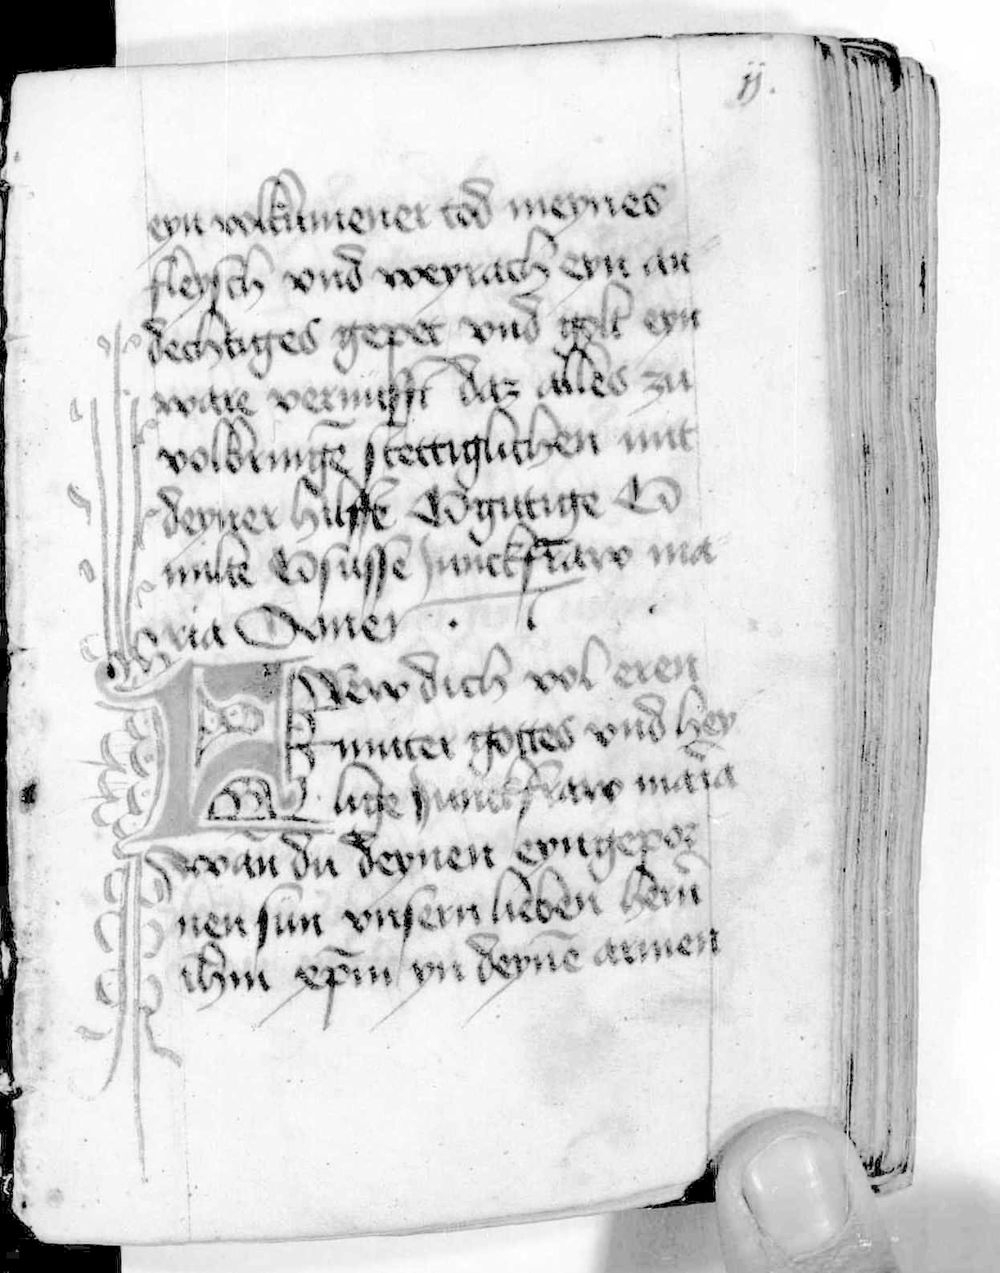 ij.
eyn volkumener tod meynes
fleysch vnd weyrach eyn an
dechtiges gepet vnd golt eyn
ware vernufft daz alles zu
volbringē stettiglichen mit
deyner hilff O gutige O
milte O susse Junckfraw ma
ria Amen
FRew dich vol eren
muter gottes vnd hey
lige Junckfraw maria
wān du deynen eyngepor
nen sun vnsern lieben hern̄
ihm̄ xp̄m yn deynē armen